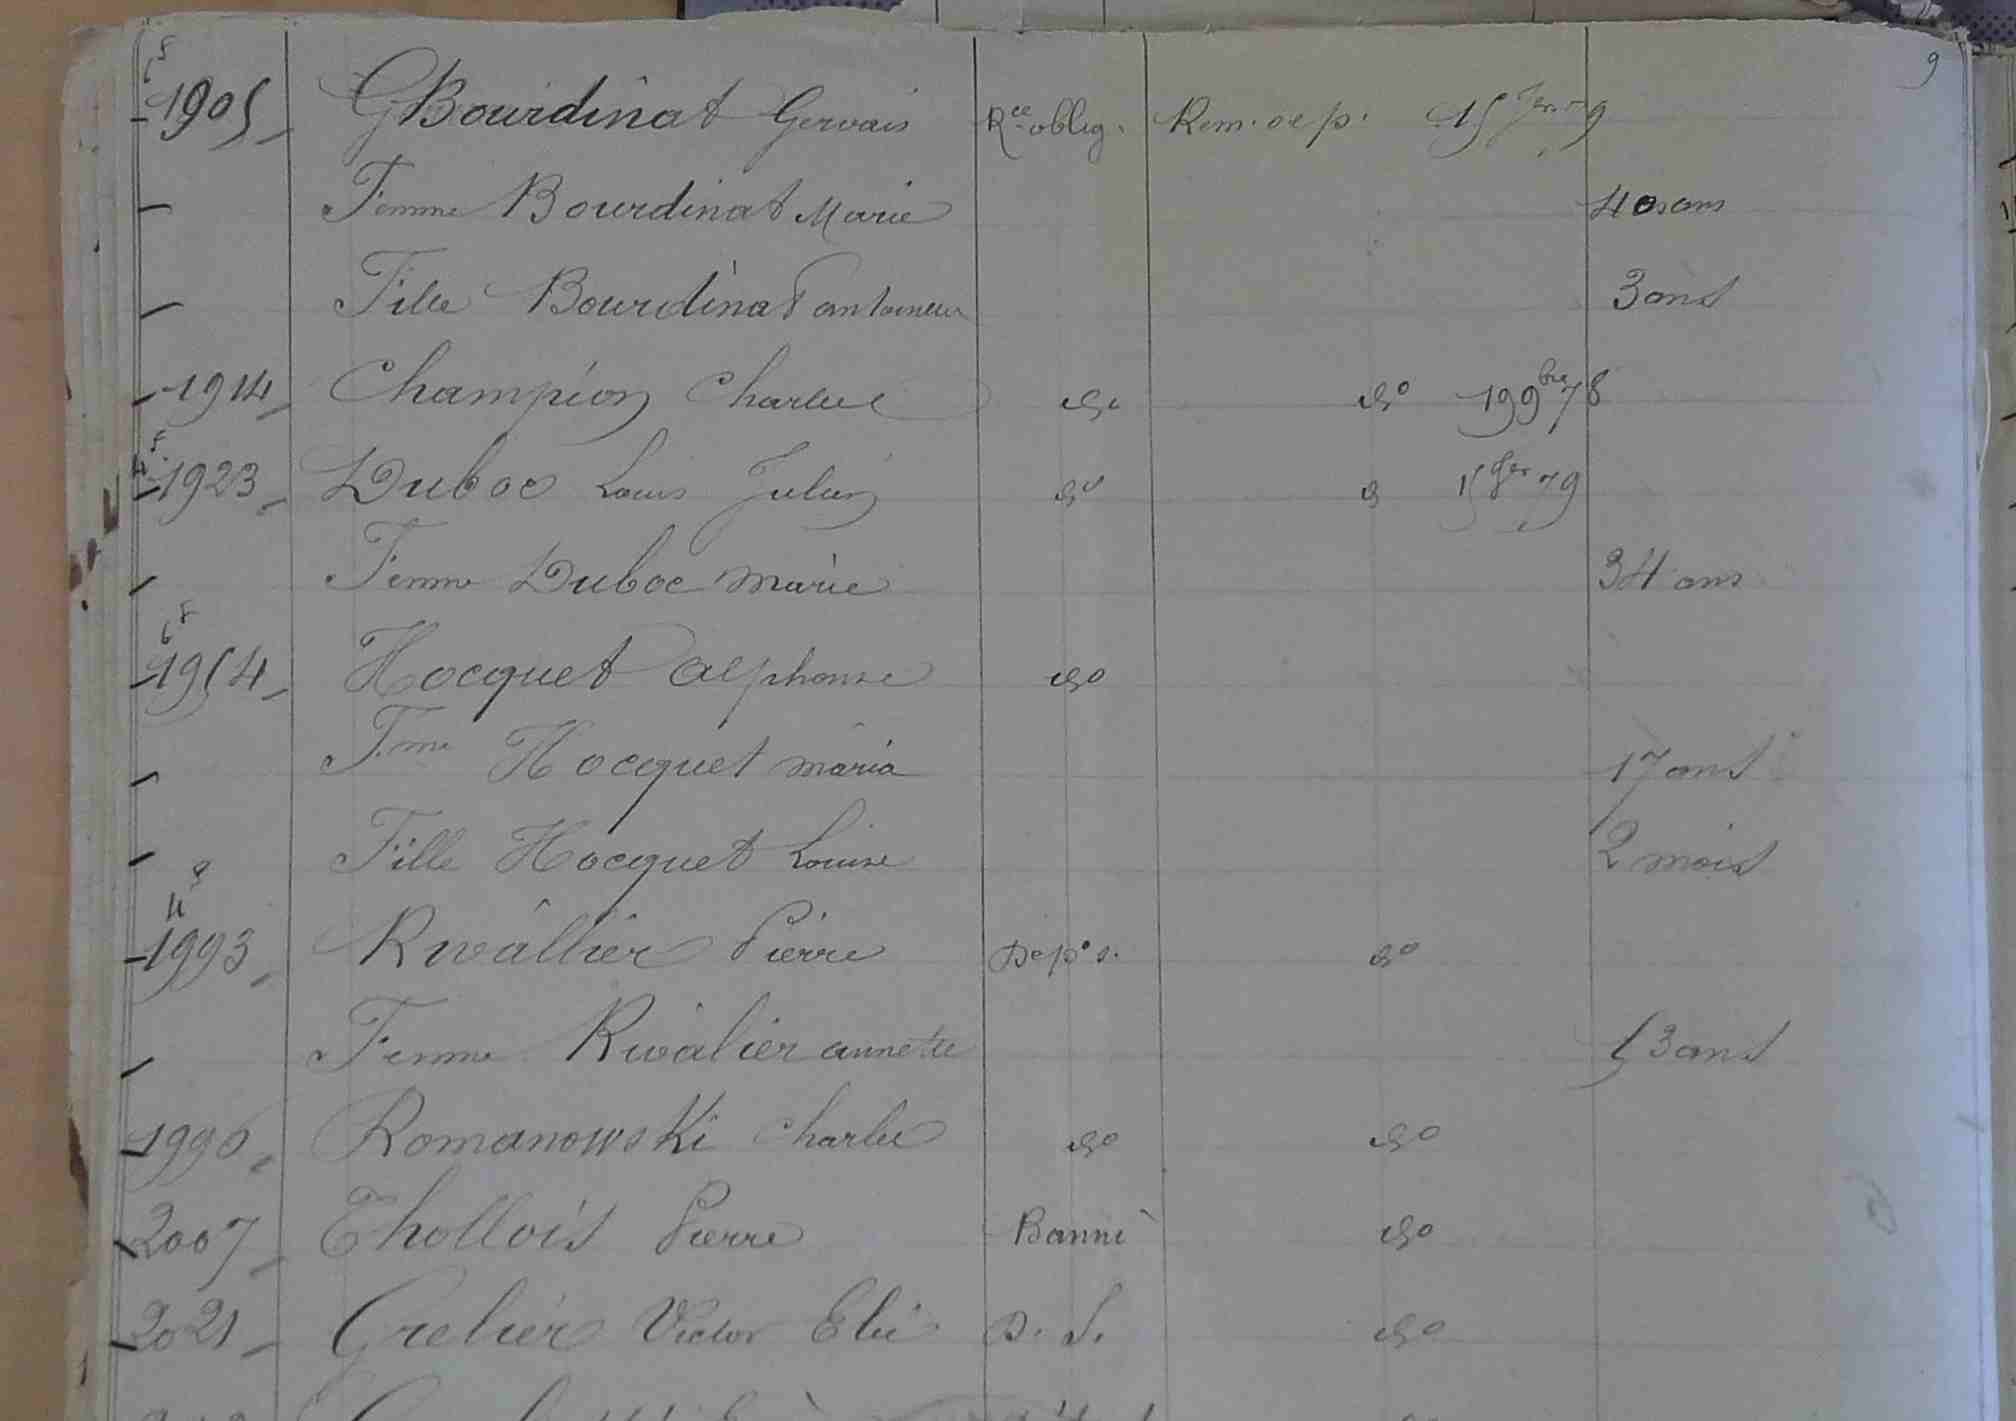 9
1905 Bourdinat Gervais Rce oblig. Rem. de p. 15 Jer 79
Femme Bourdinat Marie 40 ans
Fille Bourdinat antoinette 3 ans
1914 Champion Charles do do 19 9bre 78
1923 Duboc Louis Julien do d 15 Jer 79
Femme Duboc Marie 34 ans
1954 Hocquet Alphonse do
Fme Hocquet maria 17 ans
Fille Hocquet Louise 2 mois
1993 Rivallier Pierre Dep. s. do
Femme Rivalier annette 53 ans
1996 Romanowski Charles do do
2007 Thollois Pierre Banni do
2021 Grelier Victor Elie D. S. do